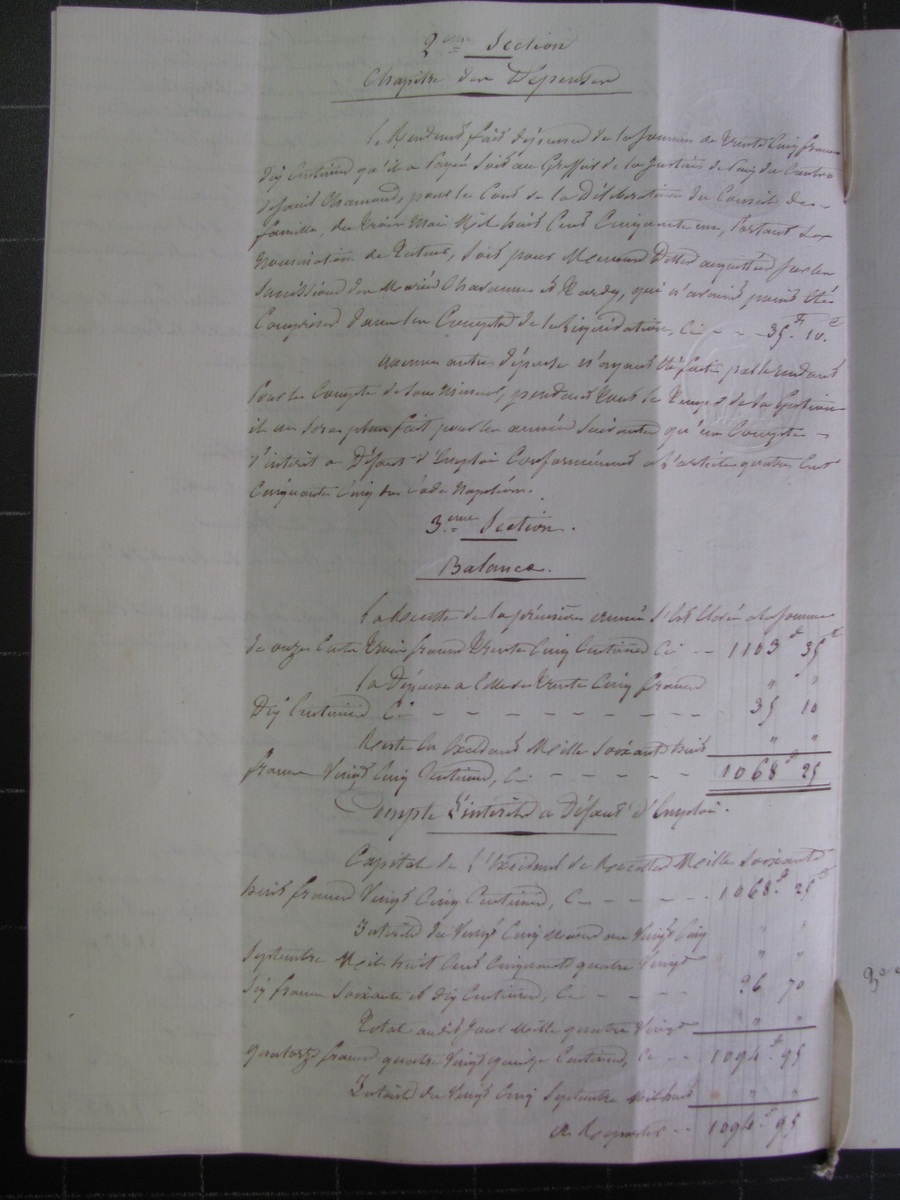 2.eme Section
Chapitre des Dépenses
le Rendant fait dépense de la somme de trente cinq francs
dix centimes qu'il a payés soit au Greffier de la Justice de Paix du Canton
de Saint Chamond, pour le Coût de la Délibération du Conseil de
famille, du trois Mai Mil huit Cent Cinquante un, portant sa
nomination de Tuteur, soit pour Menues Dettes acquittées sur les
Successions des Mariés Chavanne et Hardy, qui n'avaient point été
Comprises dans les Comptes de la Liquidation, Ci - - - 35.f 10.c
aucune autre dépense n'ayant été faite par le rendant
Pour le Compte de son Mineur, pendant tout le temps de la Gestion
il ne sera plus fait pour les années suivantes qu'un Compte
d'intérêt à Défaut d'Emploi Conformément à l'article quatre Cent
Cinquante Cinq du Code Napoléon.
3.eme Section.
Balance.
La Recette de la première année s'est élevée à la somme
de onze Cents trois francs trente Cinq Centimes Ci - - 1103f 35c
La Dépense à Celle de trente Cinq francs " "
Dix Centimes Ci - - - - - - - - - 35 10
Reste en Excédant Mille Soixante huit " "
francs Vingt Cinq Centimes, Ci - - - - - - 1068f 25
Compte d'intérêts à Défaut d'Emploi.
Capital de l'Excédant de Recettes Mille Soixante
huit francs Vingt Cinq Centimes, Ci - - - - - 1068.f 25c
Intérêts du Vingt Cinq au Vingt Cinq " "
Septembre Mil huit Cent Cinquante quatre Vingt " "
Six francs Soixante et Dix Centimes, Ci - - - - 26 70
Total audit jour Mille quatre Vingt " "
quatorze francs quatre Vingt quinze Centimes, Ci - - 1094f 95
Intérêts du Vingt Cinq Septembre Mil huit " "
à Reporter - - 1094f 95